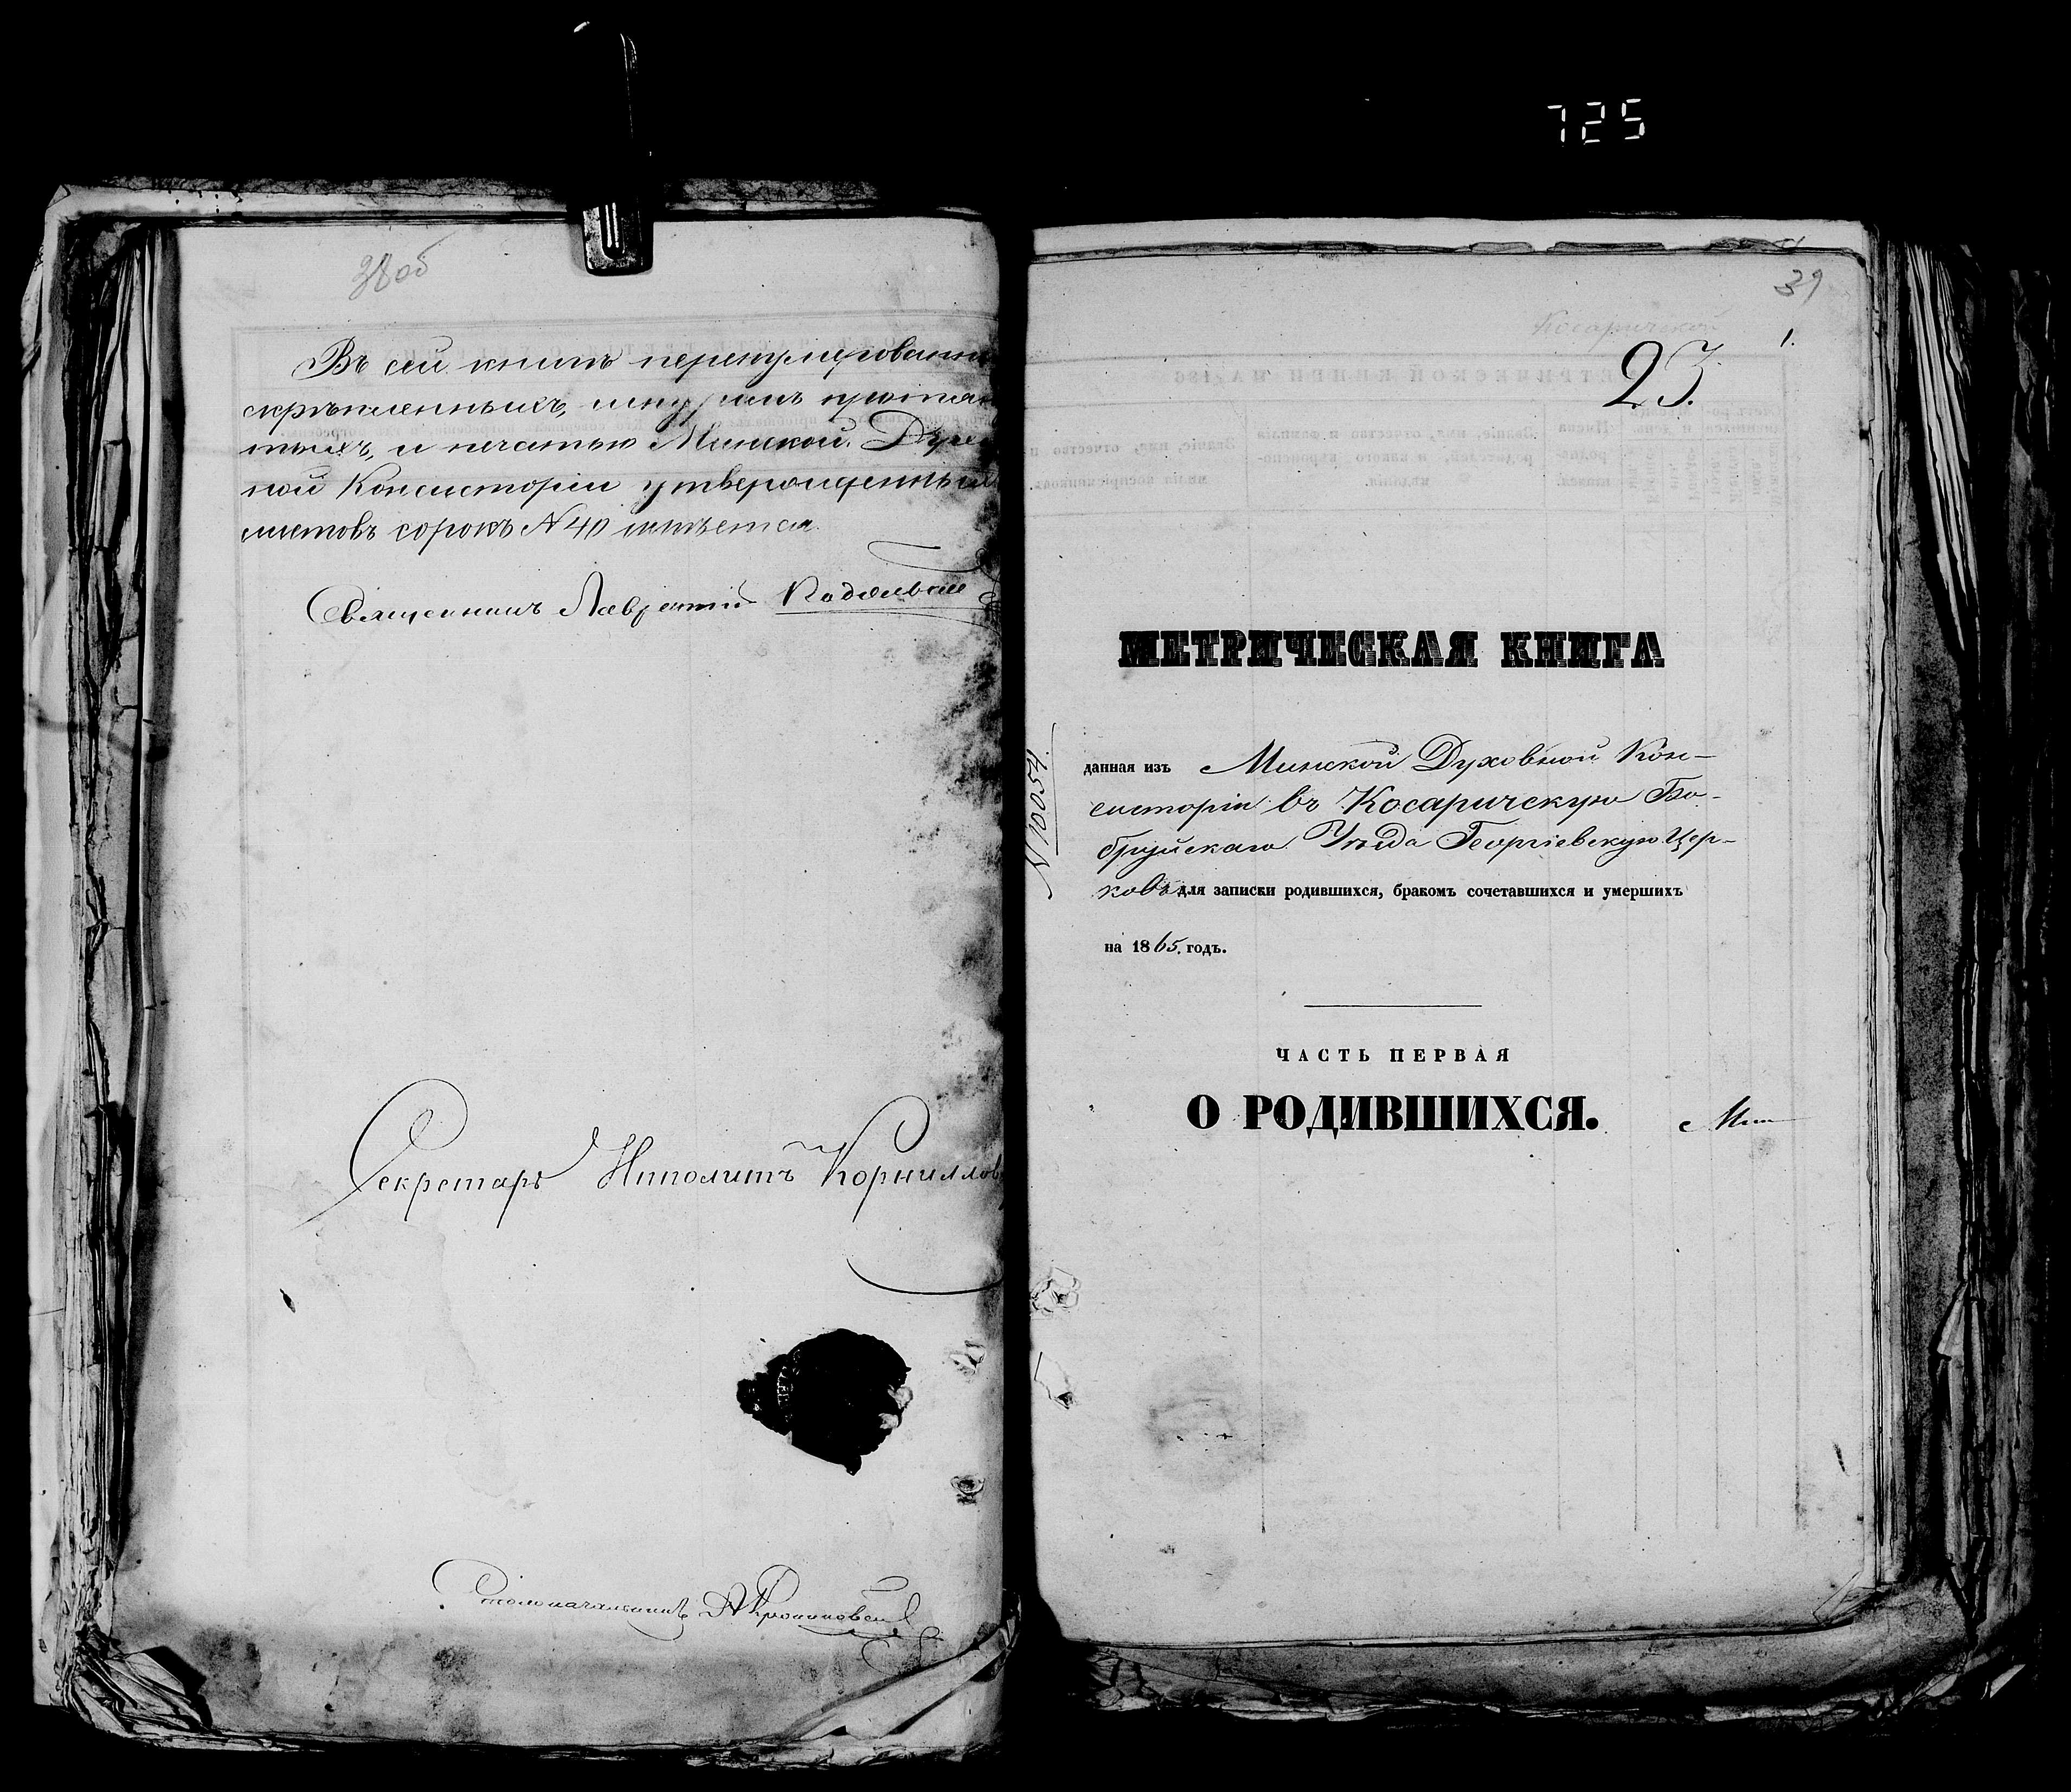 725
38об
Въ сей книгѣ перенумерованны
скрѣпленныхъ, шнуромъ протян
тыхъ, и печатью Минской Духо
ной Консисторіи утвержденных
листовъ сорокъ N 40 имѣется.
Священникъ Лаврентій
Секретарь Ипполитъ Корниллов
Столоначальникъ
39
Косаричской
1.
23.
МЕТРИЧЕСКАЯ КНИГА
N 10054.
данная изъ Минской Духовной Кон-
систоріи въ Косаричскую Бо-
бруйскаго Уѣзда Георгіевскую Цер-
ковь для записки родившихся, бракомъ сочетавшихся и умершихъ
на 1865. годъ.
ЧАСТЬ ПЕРВАЯ
О РОДИВШИХСЯ.